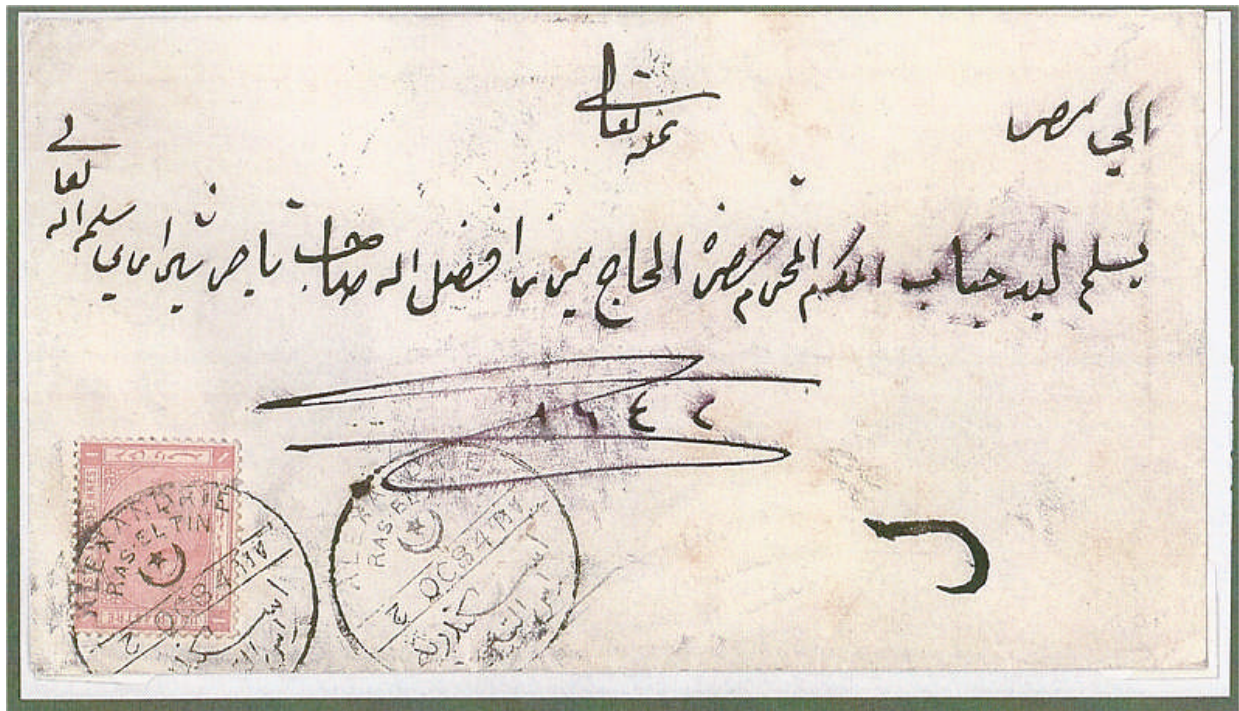 الى مصر
بمنه تعالى
يسلم ليد جناب المكرم المحترم حضرة الحاج ميرزا فضل الله صاحب تاجر شيرازي سلمه الله تعالى
٨٦٤٢
ALEXANDRIE
RAS-EL-TIN
2 OC 84
اسكندرية
راس التين
ALEXANDRIE
RAS EL TIN
2 OC 84
اسكندرية
راس التين